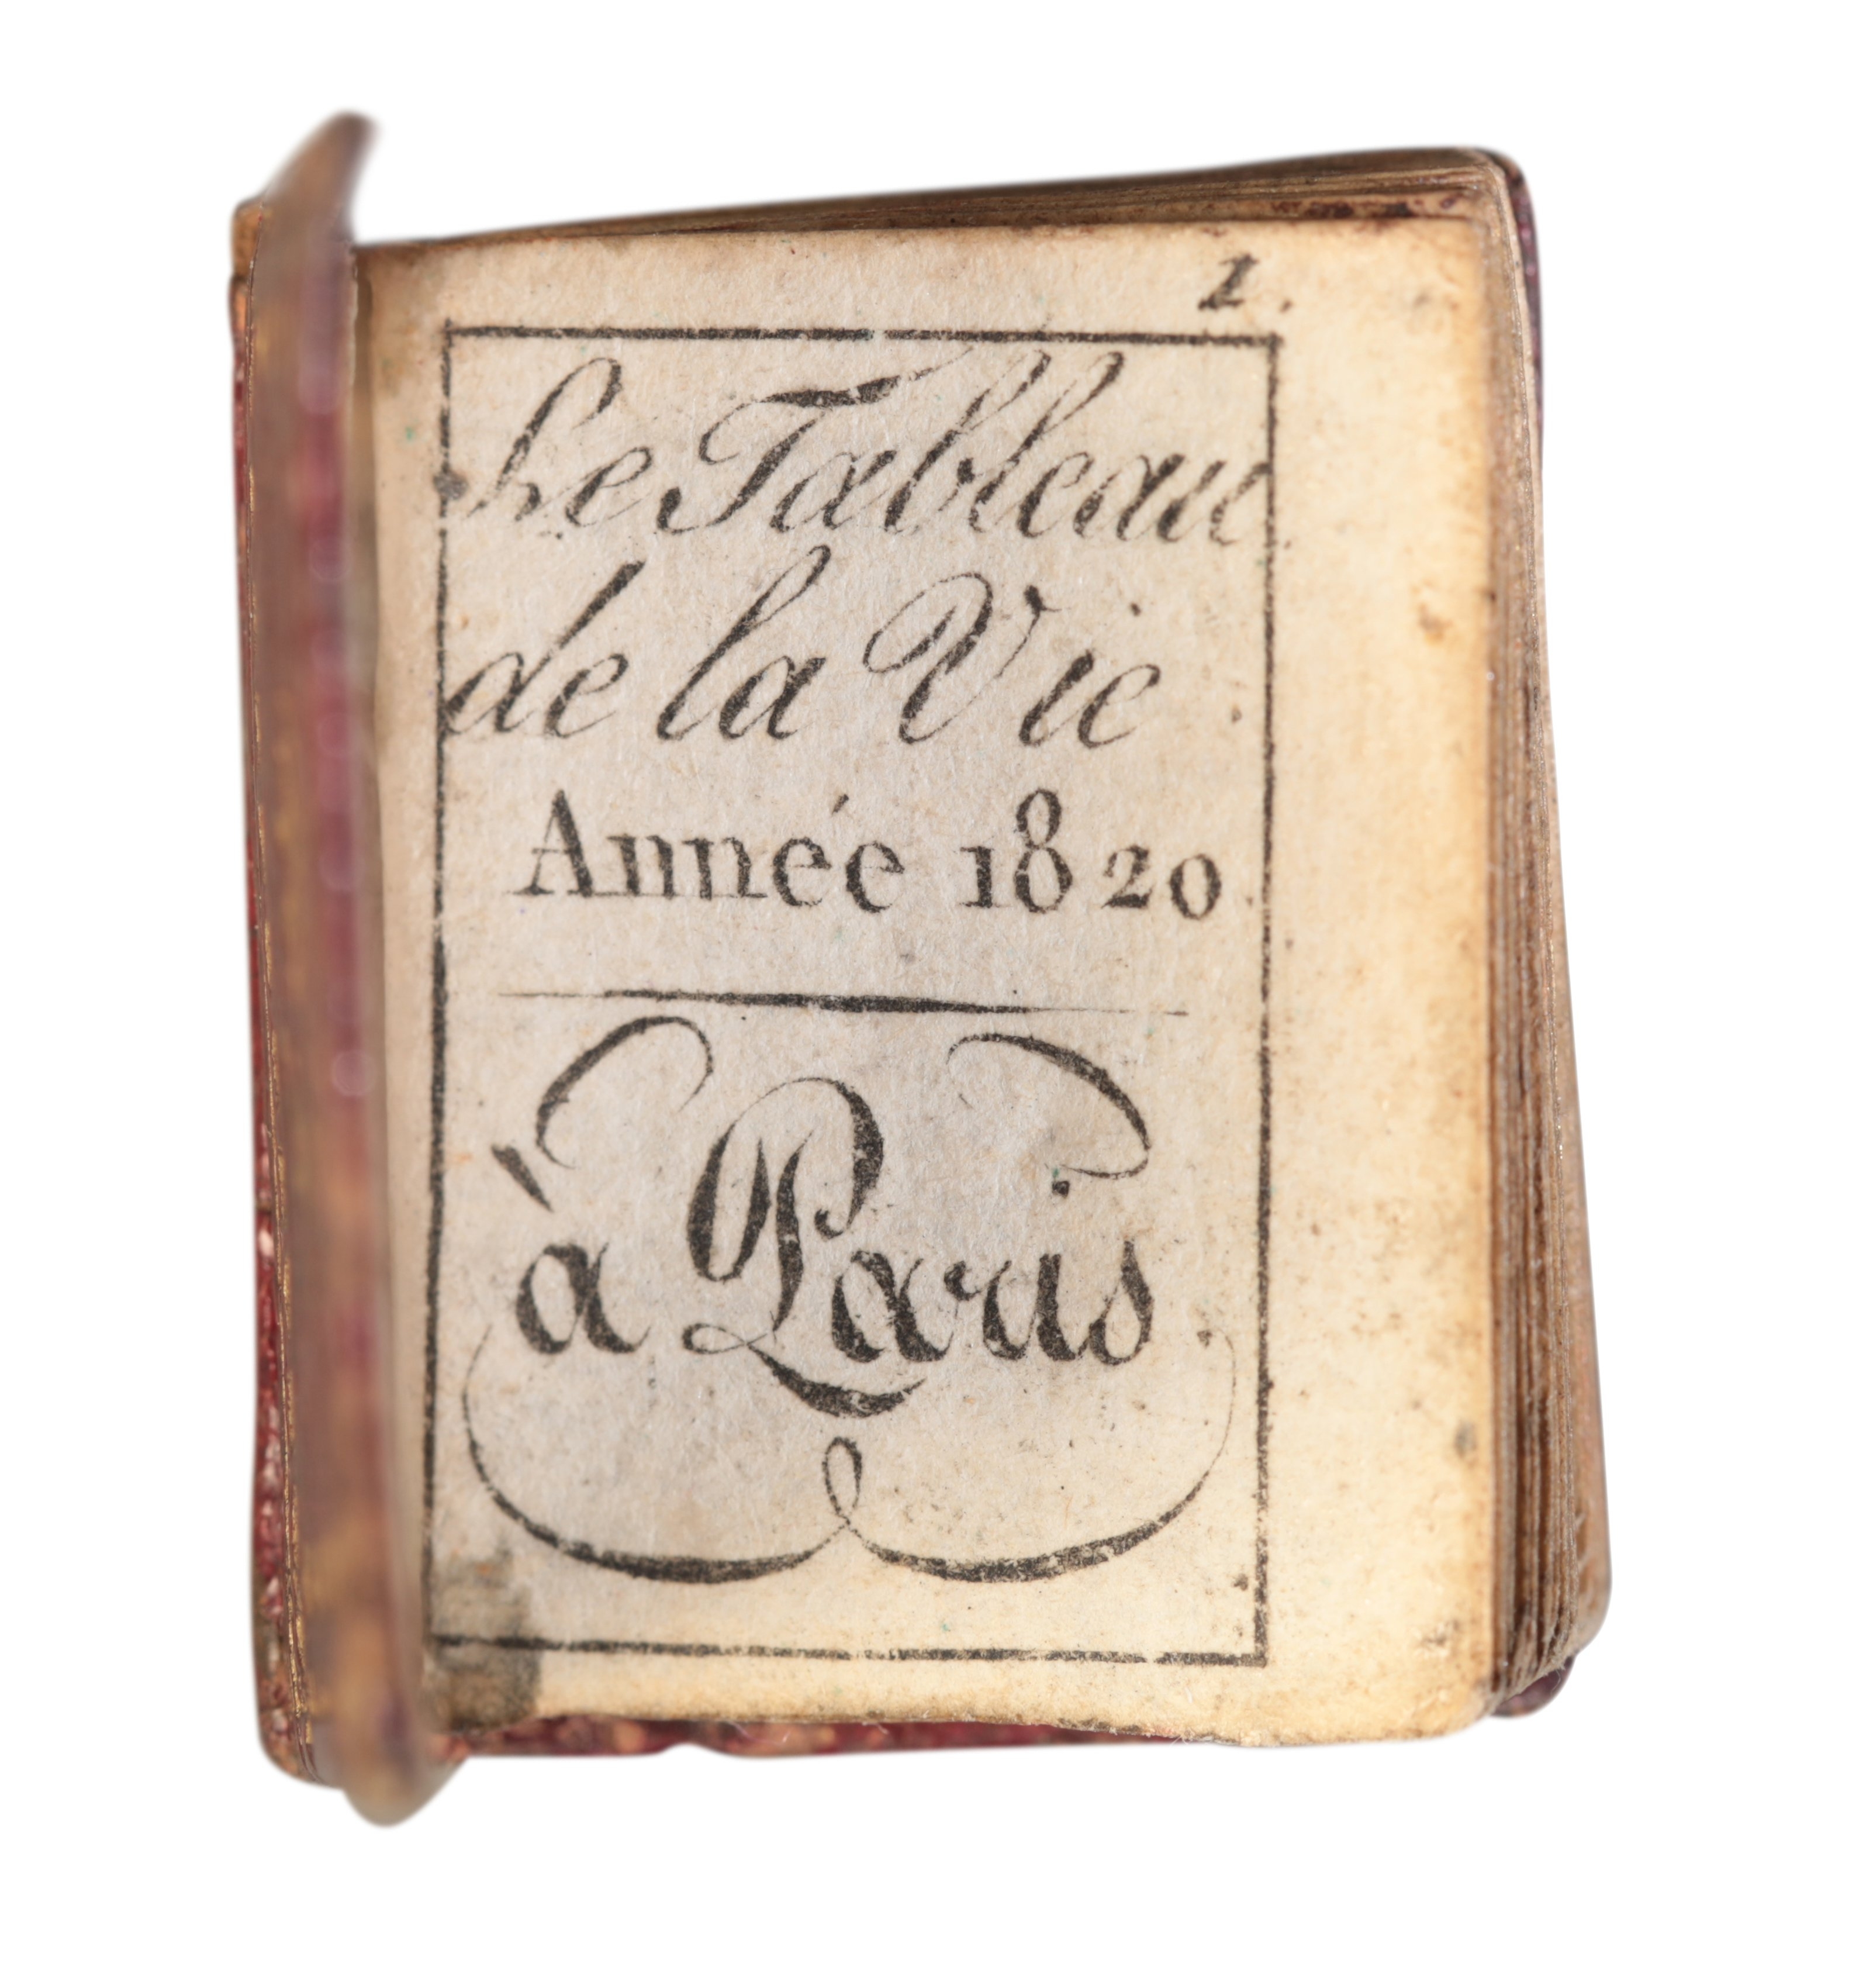 1.
Le Tableau
de la Vie
Année 1820
à Paris